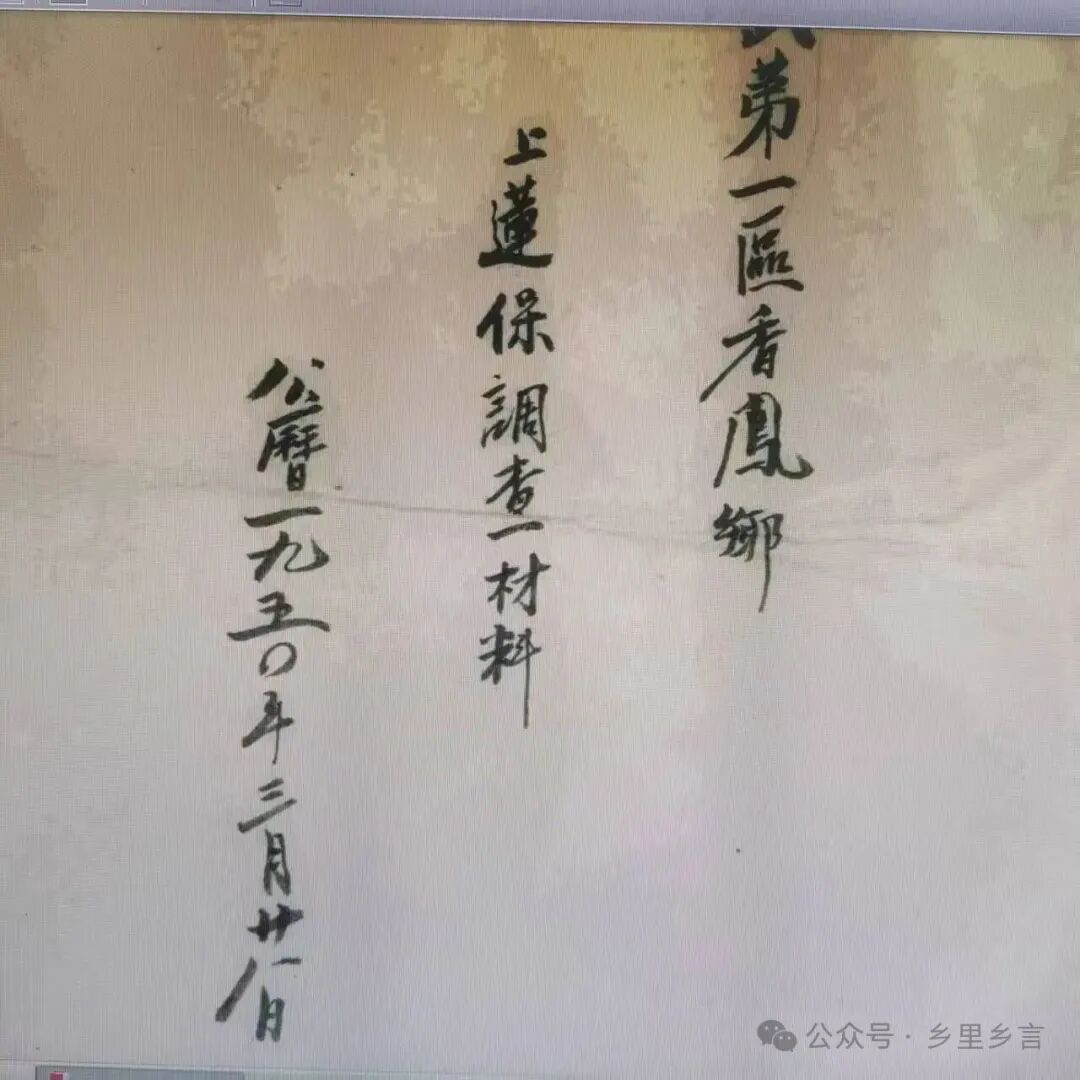 第一區香鳳鄉
上蓮保調查材料
公曆一九五〇年三月廿八日
公众号·乡里乡言